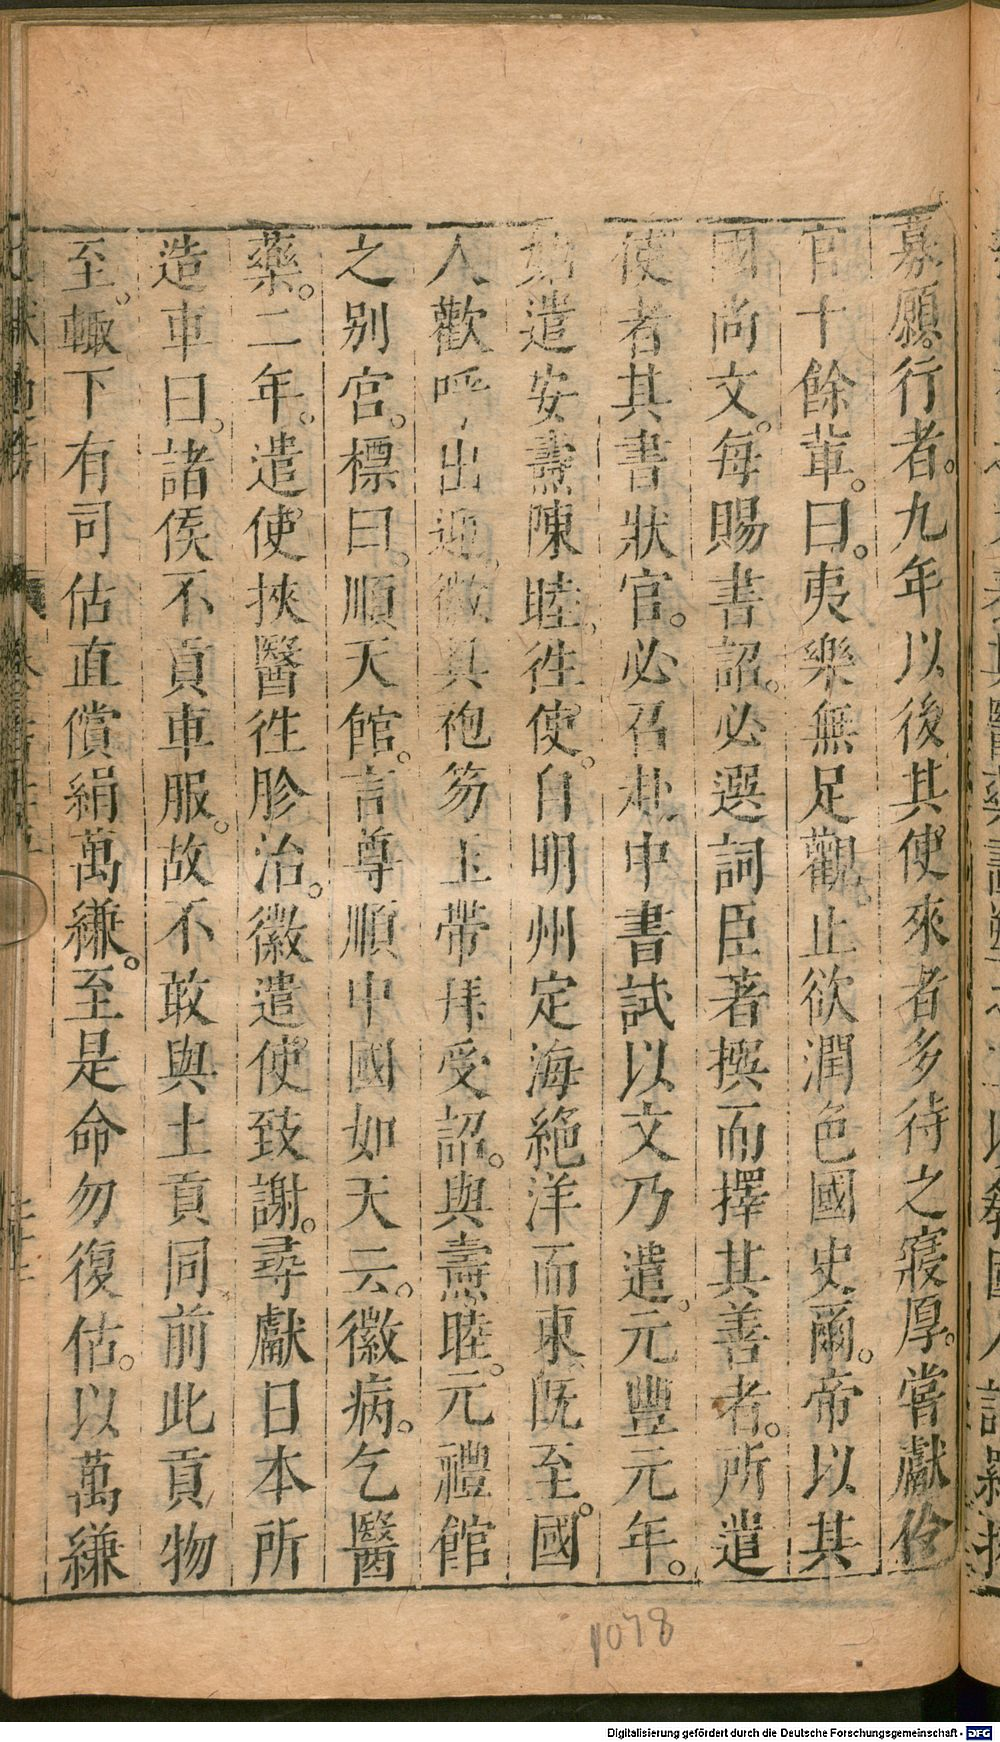 募願行者。九年以後其使來者多待之寖厚。嘗獻伶
官十餘輩。曰。夷樂無足觀。止欲潤色國史爾。帝以其
國尚文。每賜書詔。必選詞臣著撰而擇其善者。所遣
使者其書狀官。必召赴中書試以文乃遣。元豐元年。
始遣安燾陳睦徃使。自明州定海絶洋而東。旣至。國
人歡呼出迎。徽具袍笏玉帶拜受詔。與燾睦。元禮館
之别官。標曰。順天館。言尊順中國如天云。徽病。乞醫
藥。二年。遣使挾醫徃胗治。徽遣使致謝。尋獻日本所
造車曰。諸侯不貢車服。故不敢與土貢同。前此貢物
至。輙下有司估直償絹萬縑。至是命勿復估。以萬縑
1078
Digitalisierung gefördert durch die Deutsche Forschungsgemeinschaft - DFG